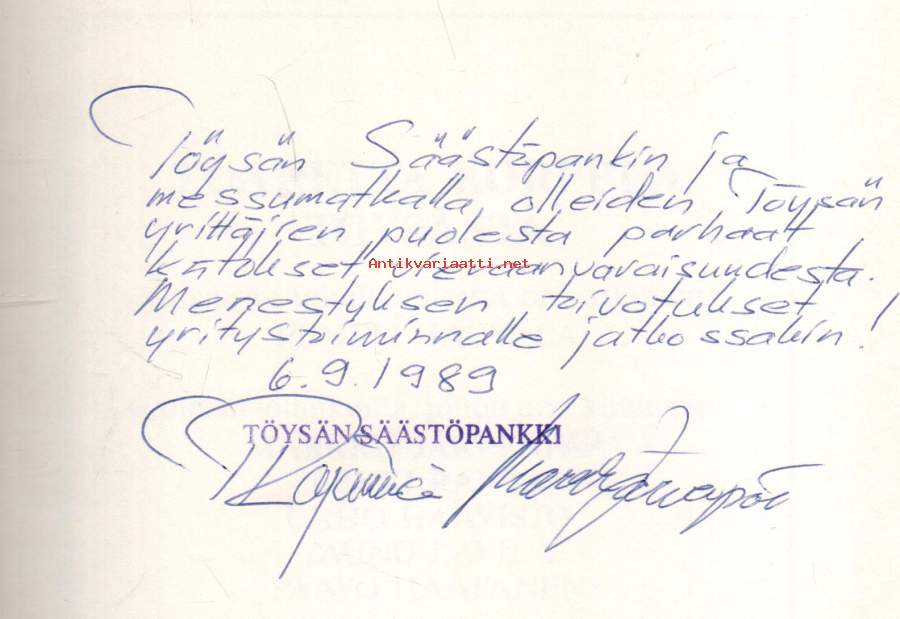 Töysän Säästöpankin ja
messumatkalla olleiden Töysän
yrittäjien puolesta parhaat
kiitokset vieraanvaraisuudesta.
Antikvariaatti.net
Menestyksen toivotukset
yritystoiminnalle jatkossakin!
6.9.1989
TÖYSÄN SÄÄSTÖPANKKI